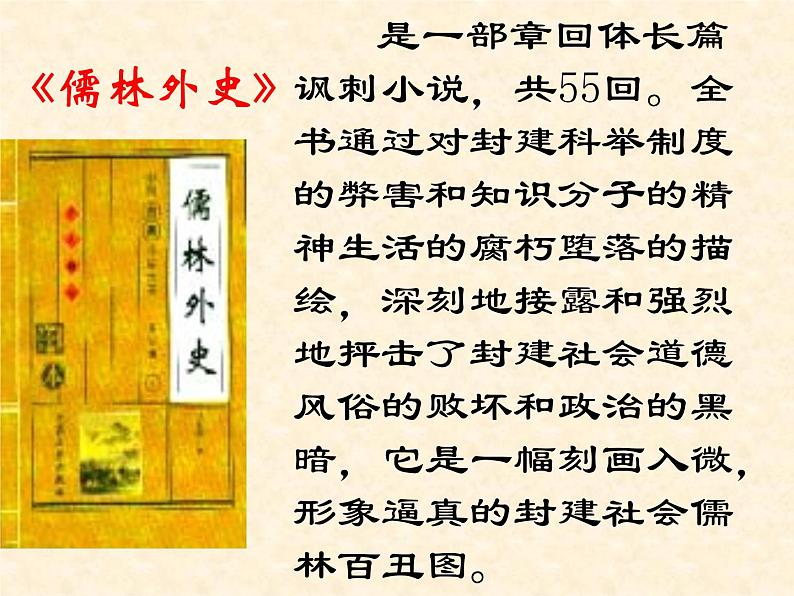 《儒林外史》
是一部章回体长篇
讽刺小说，共55回。全
书通过对封建科举制度
的弊害和知识分子的精
神生活的腐朽堕落的描
绘，深刻地接露和强烈
地抨击了封建社会道德
风俗的败坏和政治的黑
暗，它是一幅刻画入微，
形象逼真的封建社会儒
林百丑图。
儒林外史